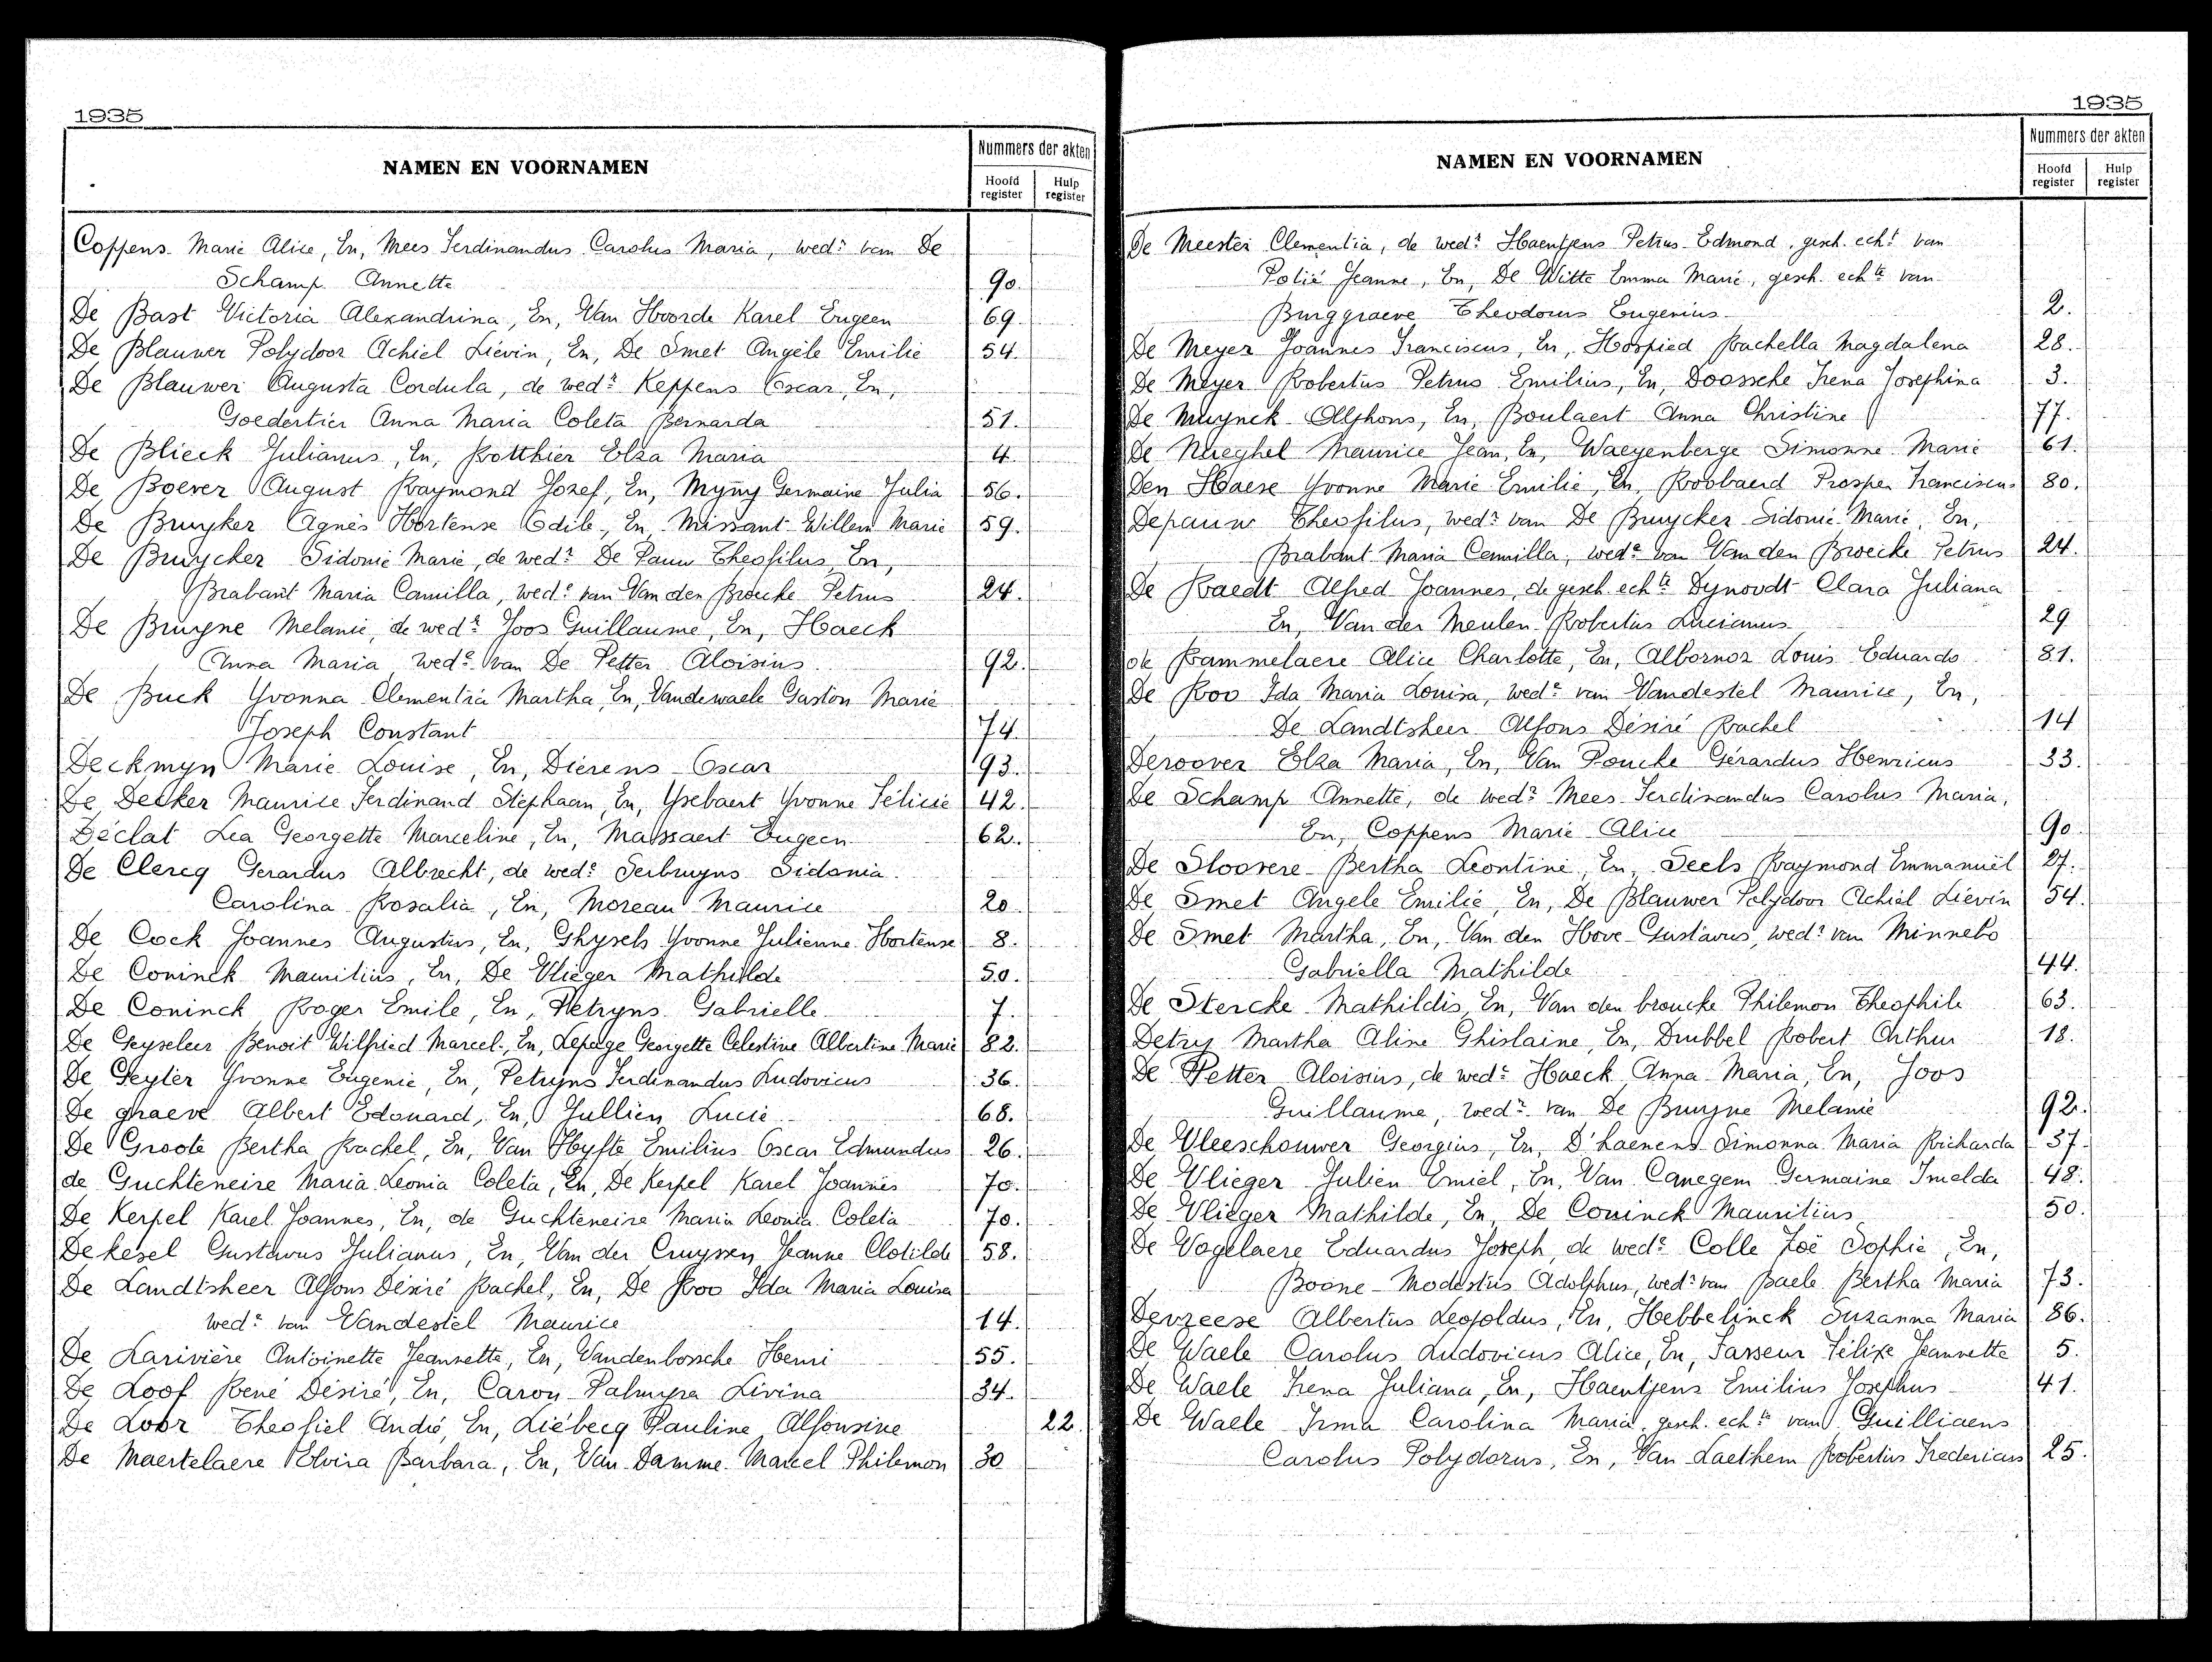 1935
NAMEN EN VOORNAMEN
Nummers der akten
Hoofd register
Hulp register
Coppens Marie Alice, En, Mees Ferdinandus Carolus Maria, wedr van De
Schamp Annette 90.
De Bast Victoria Alexandrina, En, Van Hoorde Karel Eugeen 69.
De Blauwer Polydoor Achiel Liévin, En, De Smet Angèle Emilie 54.
De Blauwer Augusta Cordula, de wedr Keppens Oscar, En,
Goedertier Anna Maria Coleta Bernarda 51.
De Blieck Julianus, En, Rotthier Elza Maria 4.
De Boever August Raymond Jozef, En, Myny Germaine Julia 56.
De Bruyker Agnès Hortense Odile, En, Missant Willem Marie 59.
De Bruycker Sidonie Marie, de wedr De Pauw Theofilus, En,
Brabant Maria Camilla, wede van Van den Broucke Petrus 24.
De Bruyne Melanie, de wedr Joos Guillaume, En, Haeck
Anna Maria wede van De Petter Aloisius 92.
De Buck Yvonna Clementia Martha, En, Vandewaele Gaston Marie
Joseph Constant 74
Deckmyn Marie Louise, En, Dierens Oscar 93.
De Decker Maurice Ferdinand Stephaan, En, Ysebaert Yvonne Félicie 42.
Déclat Lea Georgette Marceline, En, Massaert Eugeen 62.
De Clercq Gerardus Albrecht, de wede Serbruyns Sidonia
Carolina Rosalia, En, Moreau Maurice 20.
De Cock Joannes Augustus, En, Ghysels Yvonne Julienne Hortense 8.
De Coninck Mauritius, En, De Vlieger Mathilde 50.
De Coninck Roger Emile, En, Petryns Gabrielle 7.
De Geyseleer Benoit Wilfried Marcel, En, Lepage Georgette Celestine Albertine Marie 82.
De Geyter Yvonne Eugenie, En, Petryns Ferdinandus Ludovicus 36.
De graeve Albert Edouard, En, Jullien Lucie 68.
De Groote Bertha Rachel, En, Van Hyfte Emilius Oscar Edmundus 26.
de Guchteneire Maria Leonia Coleta, En, De Kerpel Karel Joannes 70.
De Kerpel Karel Joannes, En, de Guchteneire Maria Leonia Coleta 70.
Dekesel Gustavus Julianus, En, Van der Cruyssen Jeanne Clotilde 58.
De Landtsheer Alfons Désiré Rachel, En, De Roo Ida Maria Louisa
wede van Vandestel Maurice 14.
De Larivière Antoinette Jeannette, En, Vandenbossche Henri 55.
De Loof René Désiré, En, Caron Palmyra Livina 34.
De Loor Theofiel André, En, Liébecq Pauline Alfonsine 22.
De Maertelaere Elvira Barbara, En, Van Damme Marcel Philemon 30
1935
NAMEN EN VOORNAMEN
Nummers der akten
Hoofd register
Hulp register
De Meester Clementia, de wedr Haentjens Petrus Edmond, gesch. echt van
Polié Jeanne, En, De Witte Emma Marie, gesch. echte van
Burggraeve Theodorus Eugenius 2.
De Meyer Joannes Franciscus, En, Hospied Rachella Magdalena 28.
De Meyer Robertus Petrus Emilius, En, Doossche Irena Josephina 3.
De Muynck Alphons, En, Boulaert Anna Christine 77.
De Naeghel Maurice Jean, En, Waeyenberge Simonne Marie 61.
Den Haese Yvonne Marie Emilie, En, Robbaerd Prosper Franciscus 80.
Depauw Theofilus, wedr van De Bruycker Sidonie Marie, En,
Brabant Maria Camilla, wede van Van den Broecke Petrus 24.
De Raedt Alfred Joannes, de gesch. echte Dynoodt Clara Juliana
En, Van der Meulen Robertus Lucianus 29
de Rammelaere Alice Charlotte, En, Albornoz Louis Eduardo 81.
De Roo Ida Maria Louisa, wede van Vandestel Maurice, En,
De Landtsheer Alfons Désiré Rachel 14
Deroover Elza Maria, En, Van Poucke Gérardus Henricus 33.
De Schamp Annette, de wedr Mees Ferdinandus Carolus Maria,
En, Coppens Marie Alice 90.
De Sloovere Bertha Leontine, En, Seels Raymond Emmanuël 27.
De Smet Angele Emilie, En, De Blauwer Polydoor Achiel Liévin 54.
De Smet Martha, En, Van den Hove Gustavus, wedr van Minnebo
Gabriella Mathilde 44.
De Stercke Mathildis, En, Van den broucke Philemon Theophile 63.
Detry Martha Aline Ghislaine, En, Drubbel Robert Arthur 18.
De Petter Aloisius, de wede Haeck Anna Maria, En, Joos
Guillaume, wedr van De Bruyne Melanie 92.
De Vleeschouwer Georgius, En, D'haenens Simonna Maria Richarda 37.
De Vlieger Julien Emiel, En, Van Canegem Germaine Imelda 48.
De Vlieger Mathilde, En, De Coninck Mauritius 50.
De Vogelaere Eduardus Joseph, de wede Colle Zoë Sophie, En,
Boone Modestus Adolphus, wedr van Baele Bertha Maria 73.
Devreese Albertus Leopoldus, En, Hebbelinck Suzanna Maria 86.
De Waele Carolus Ludovicus Alice, En, Fasseur Félixe Jeannette 5.
De Waele Irena Juliana, En, Haentjens Emilius Josephus 41.
De Waele Irma Carolina Maria, gesch. echte van Guilliaens
Carolus Polydorus, En, Van Laethem Robertus Fredericus 25.